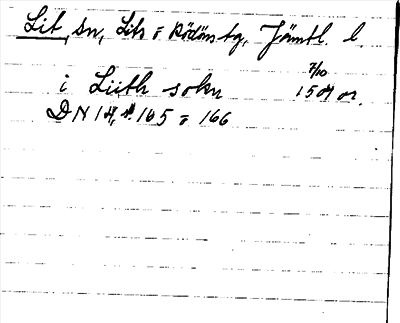 Lit, sn, Lits o Rödöns tg, Jämtl. l.
7/10
i Liith sokn 1504 or.
DN 14, s. 165 o 166